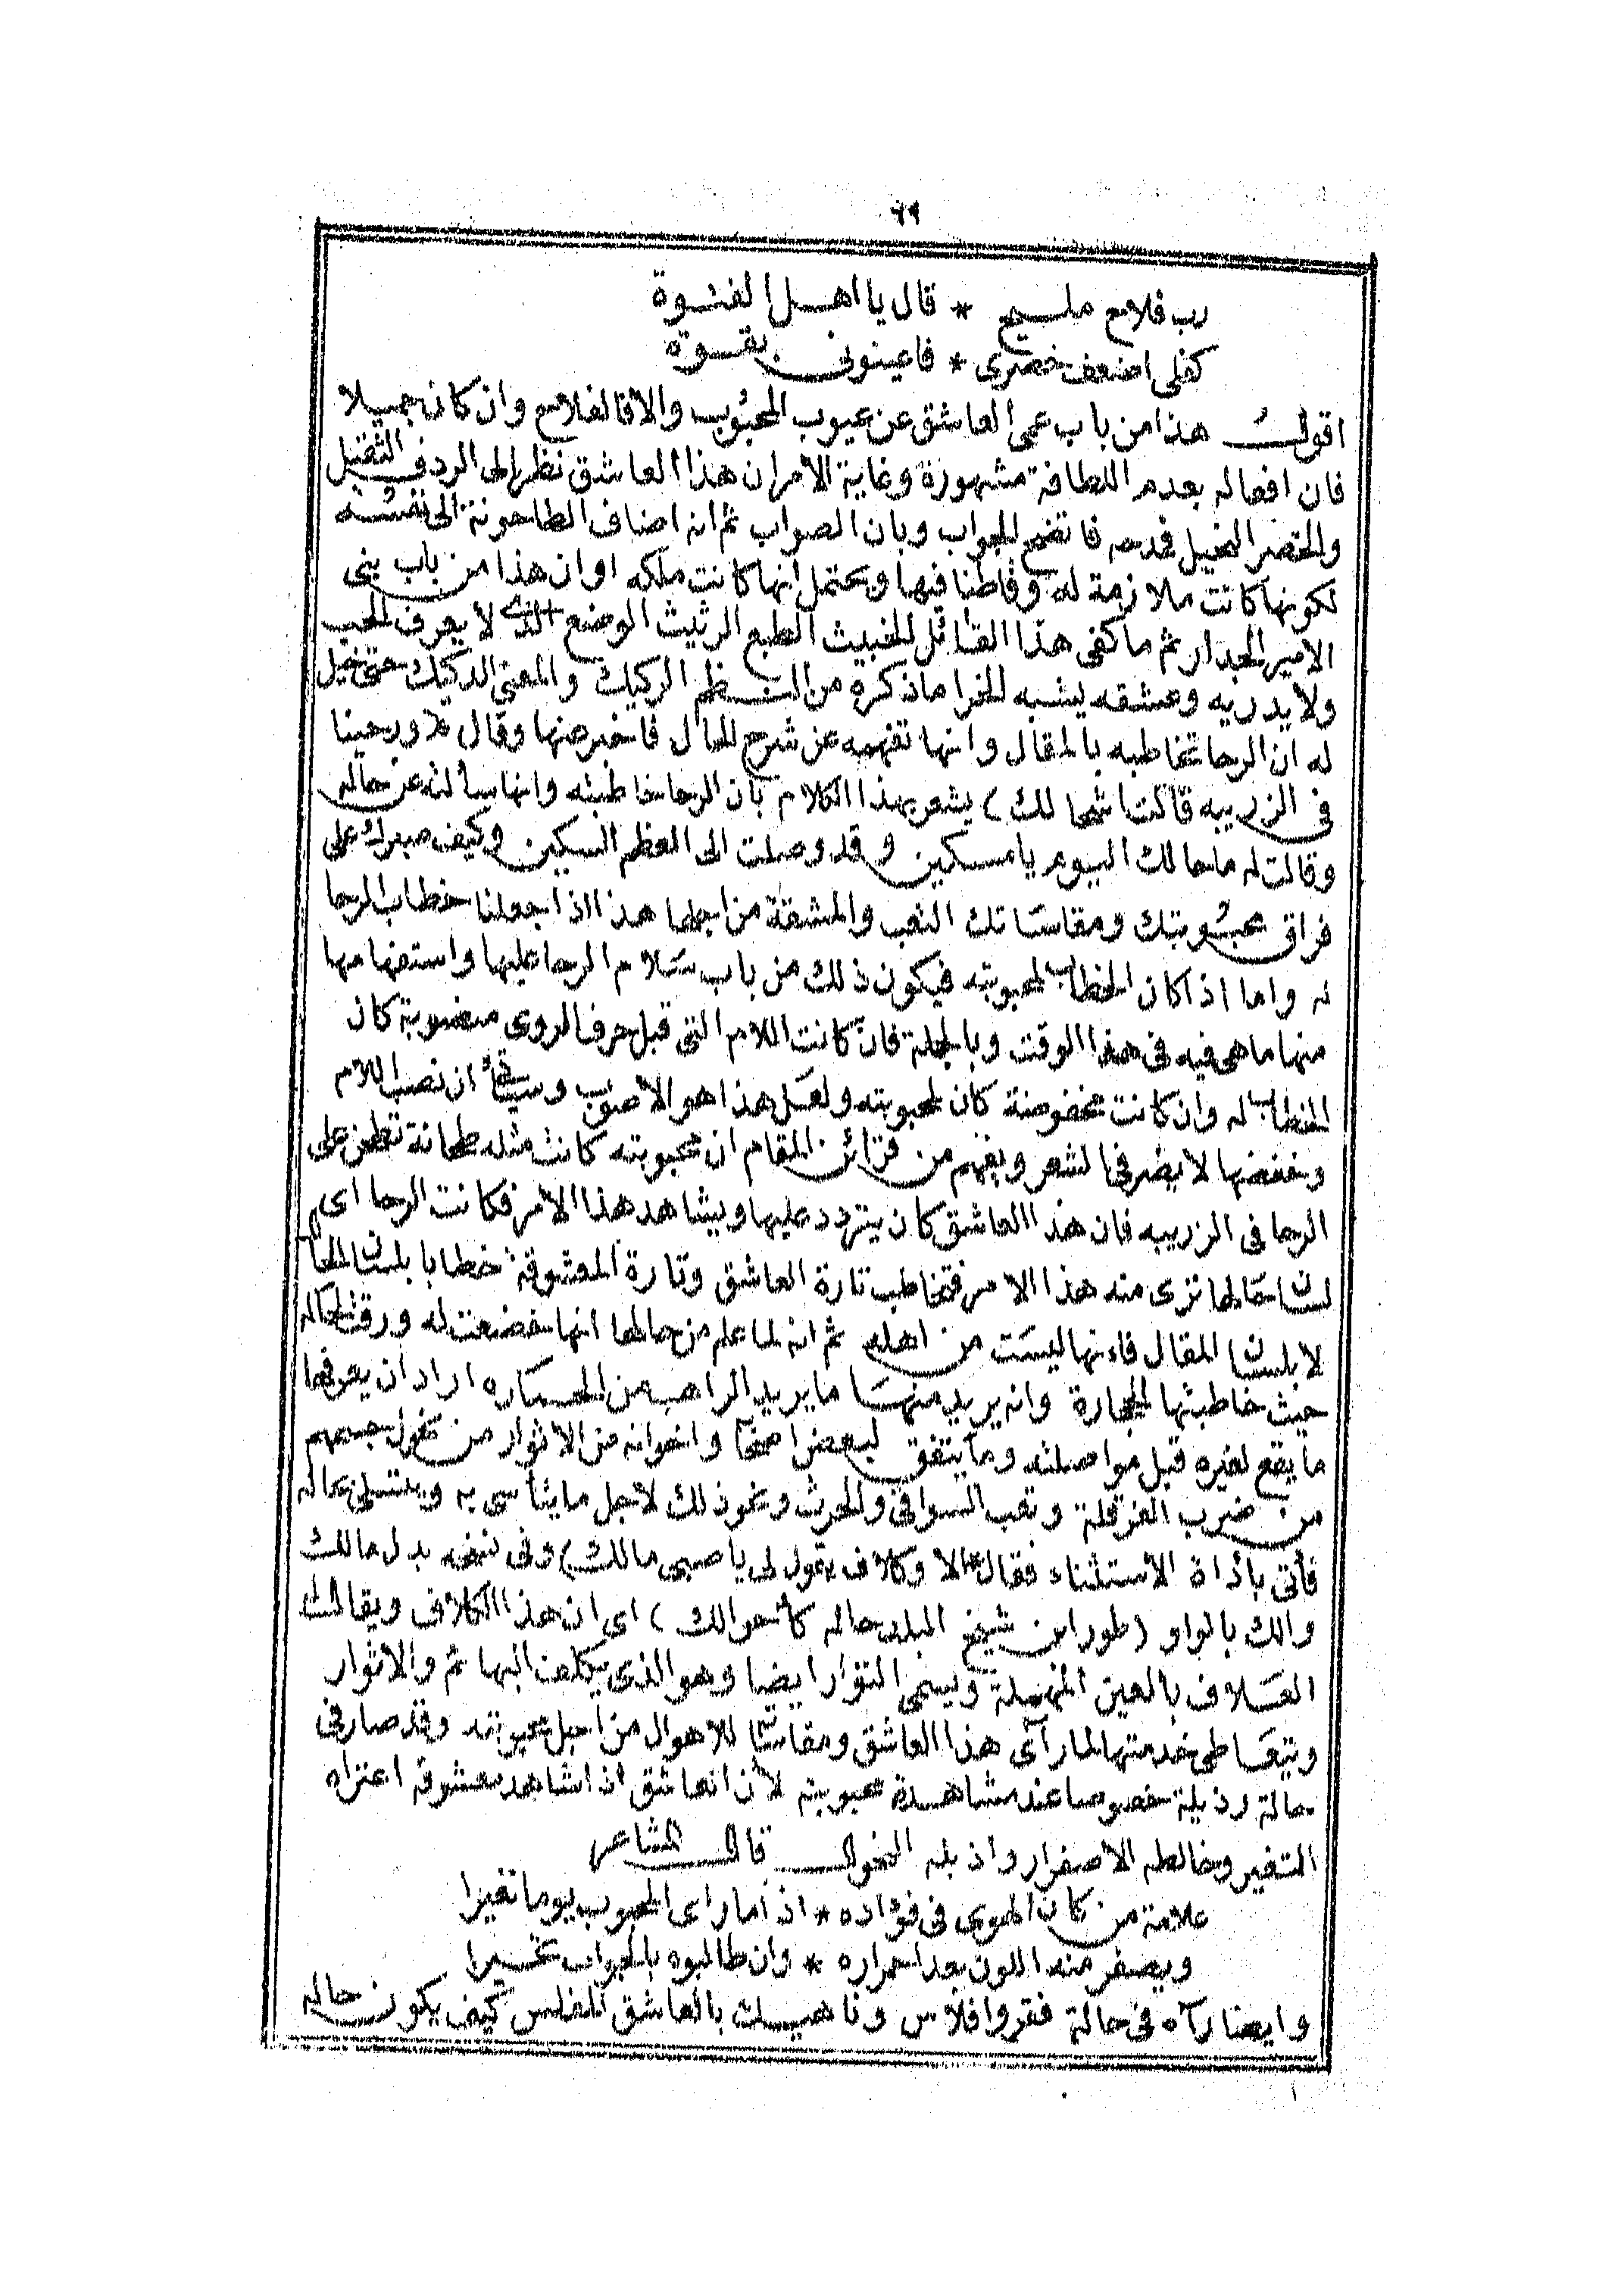 ٦٩
رب فلاح مليح * قال يا اهل الفتوة
كفلى اضعف خصرى * فاعينونى بقوة
اقول هذا من باب عمى العاشق عن عيوب المحبوب والا فالفلاح وان كان جميلا
فان افعاله بعدم اللطافة مشهورة وغاية الامر ان هذا العاشق نظر الى الردف الثقيل
والخصر النحيل فمدحه فاتضح الجواب وبان الصواب ثم انه اضاف الطاحونة الى نفسه
لكونها كانت ملازمة له وقاطنا فيها ويحتمل انها كانت ملكه او ان هذا من باب بنى
الامير الجدار ثم ما كفى هذا القائل الخبيث الطبع الرثيث الوضع الذى لا يعرف الحب
ولا يدريه وعشقه يشبه الخرا ما ذكره من النظم الركيك والمعنى الدكيك حتى خيل
له ان الرحا تخاطبه بالمقال وانها تفهمه عن شرح الحال فاخبر عنها وقال (ورحينا
فى الزريبه قالت اشحالك) يشعر بهذا الكلام بان الرحا خاطبته وانها سألته عن حاله
وقالت له ما حالك اليوم يا مسكين وقد وصلت الى العظم السكين وكيف صبرك على
فراق محبوبتك ومقاساتك التعب والمشقة من اجلها هذا اذا جعلنا خطاب الرحا
له واما اذا كان الخطاب لمحبوبته فيكون ذلك من باب سلام الرحا عليها واستفهامها
منها ما هى فيه فى هذا الوقت وبالجملة فان كانت اللام التى قبل حرف الروى منصوبة كان
الخطاب له وان كانت مخفوضة كان لمحبوبته ولعل هذا هو الاصوب وسيأتى ان نصب اللام
وخفضها لا يضر فى الشعر ويفهم من قرائن المقام ان محبوبته كانت مثله طحانة تطحن على
الرحا فى الزريبه فان هذا العاشق كان يتردد عليها ويشاهد هذا الامر فكانت الرحا اى
لسان حالها ترى منه هذا الامر فتخاطب تارة العاشق وتارة المعشوقة خطابا بلسان الحال
لا بلسان المقال فانها ليست من اهله ثم انه لما علم من حالها انها خضعت له ورقت لحاله
حيث خاطبتها الحجارة وانه يريد منها ما يريد الراهب من الحساره اراد ان يعرفها
ما يقع لغيره قبل مواصلته وما يتفق لبعض اصحابه واخوانه من الاثوار من نحول جسمهم
من ضرب الفرقلة وتعب السواقى والحرث ونحو ذلك لاجل ما يتأسى به ويتسلى بحاله
فأتى بأداة الاستثناء فقال (الا وكلاف يقول لى يا صبى مالك) وفى نسخه بدل مالك
والك بالواو (طور ابن شيخ البلد حاله كاحوالك) اى ان هذا الكلاف ويقال له
العلاف بالعين المهملة ويسمى التوار ايضا وهو الذى يكلف البهائم والاثوار
ويتعاطى خدمتها لما رآى هذا العاشق ومقاساته للاهوال من اجل محبوبته وقد صار فى
حالة رذيلة خصوصا عند مشاهدة محبوبته لأن العاشق اذا شاهد معشوقه اعتراه
التغير وخالطه الاصفرار واذبله النحول قال الشاعر
علامة من كان الهوى فى فؤاده * اذا ما راى المحبوب يوما تغيرا
ويصفر منه اللون بعد احمراره * وان طالبوه بالجواب تحيرا
وايضا رآه فى حالة فقر وافلاس وناهيك بالعاشق المفلس كيف يكون حاله